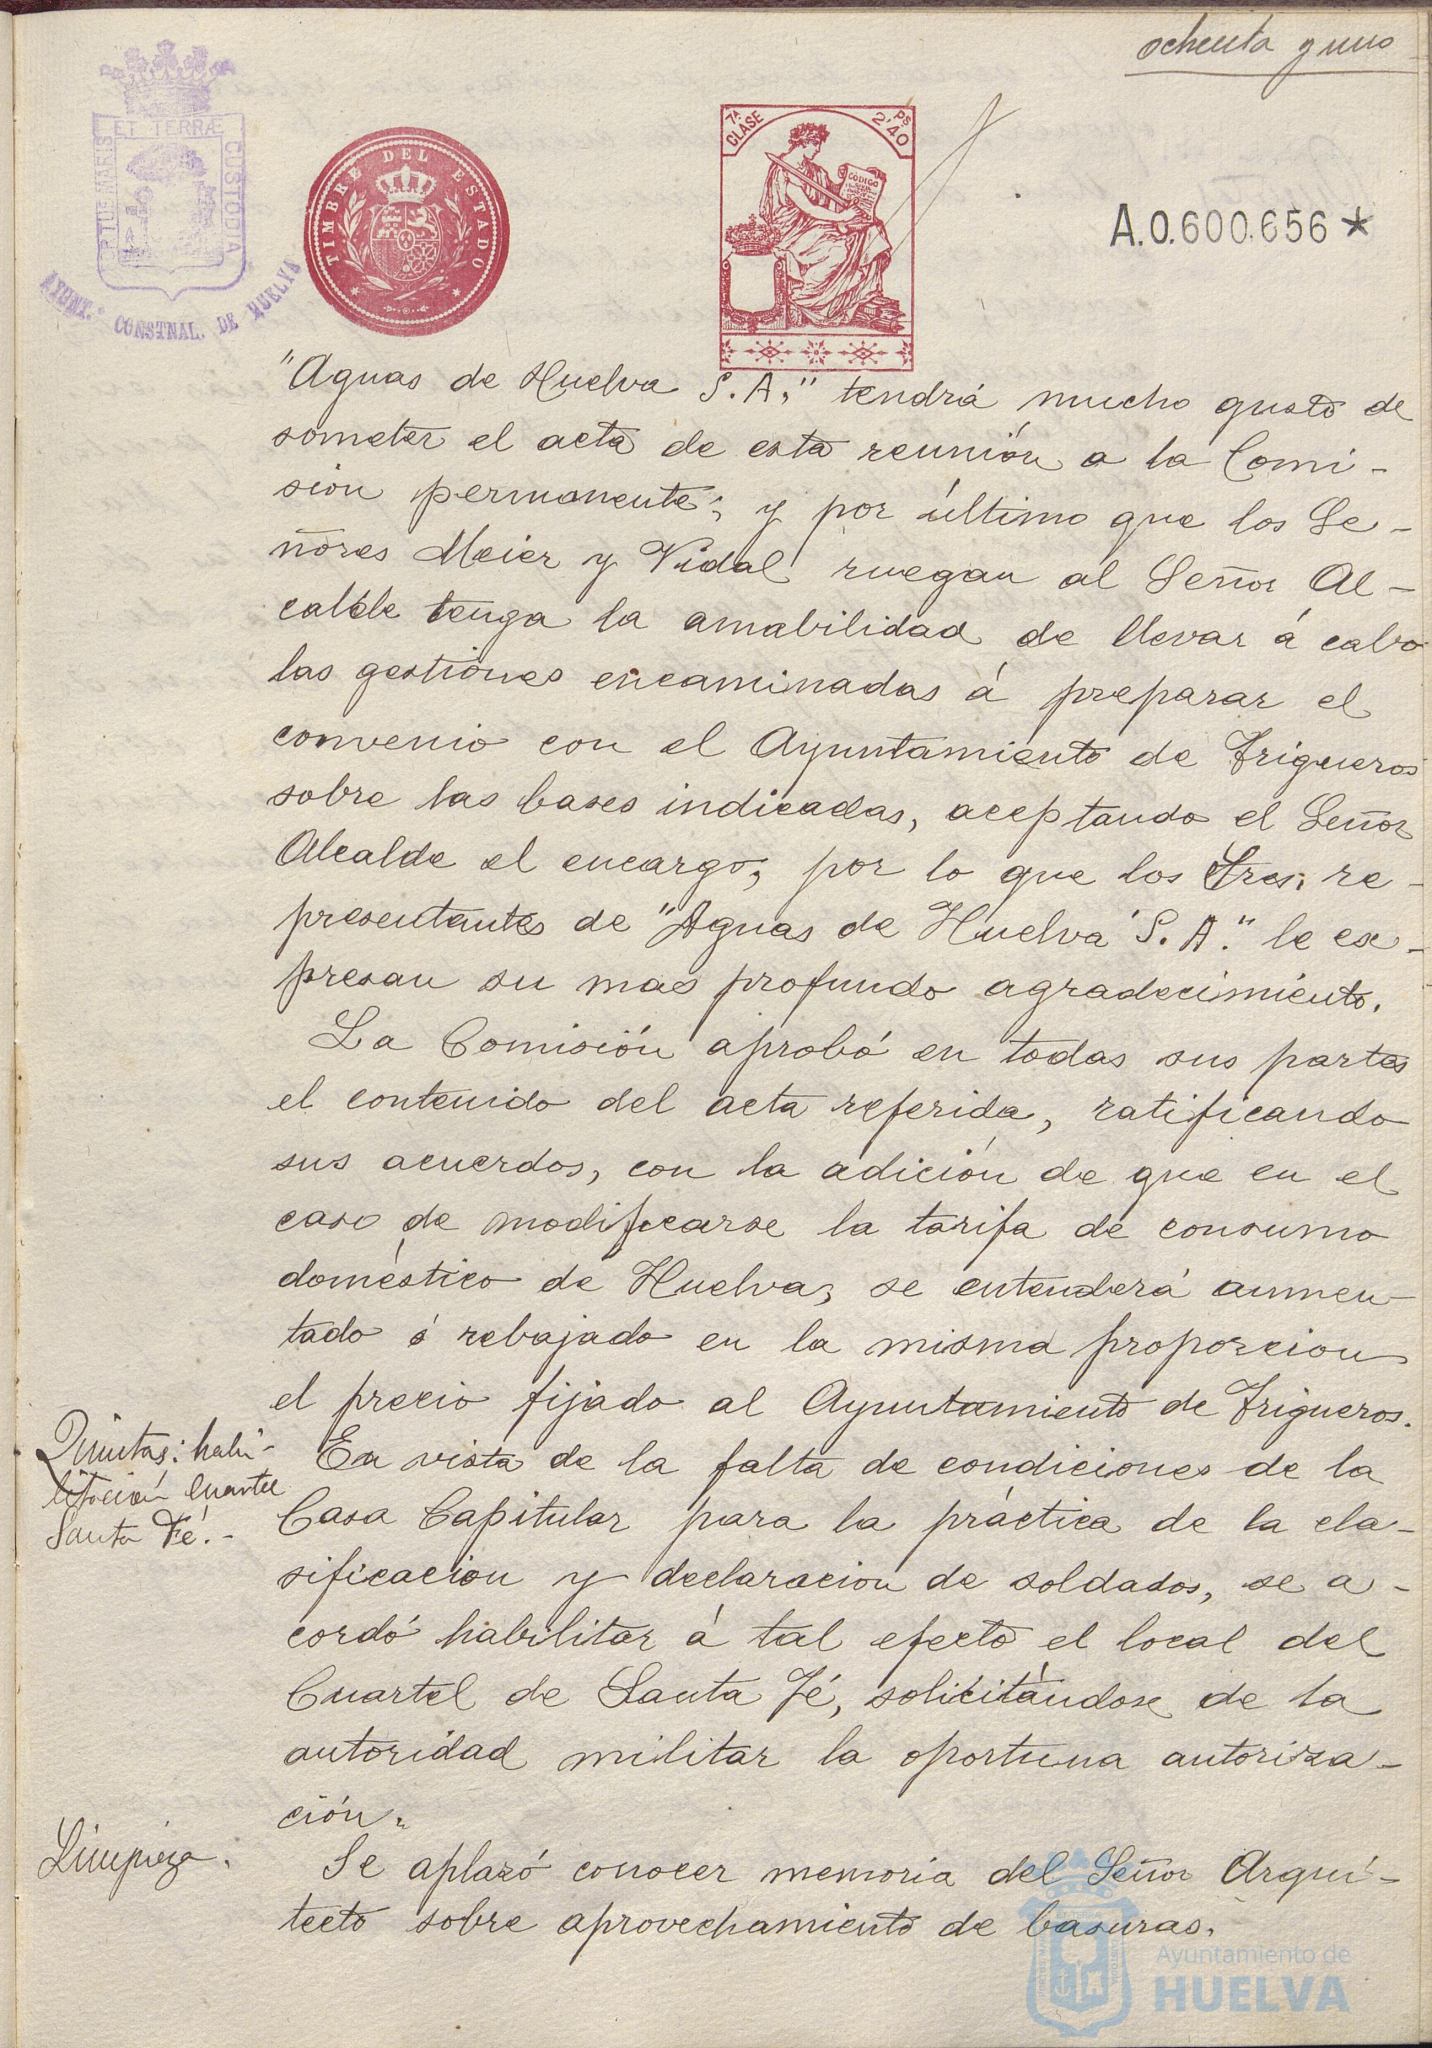 ochenta y uno
PORTUS MARIS ET TERRÆ CUSTODIA
AYUNT.º CONSTNAL. DE HUELVA
TIMBRE DEL ESTADO
7ª CLASE
Ps 2'40
CODIGO
A.0.600.656 *
"Aguas de Huelva S.A." tendrá mucho gusto de
someter el acta de esta reunión a la Comi-
sion permanente; y por último que los Se-
ñores Meier y Vidal ruegan al Señor Al-
calde tenga la amabilidad de llevar á cabo
las gestiones encaminadas á preparar el
convenio con el Ayuntamiento de Trigueros
sobre las bases indicadas, aceptando el Señor
Alcalde el encargo, por lo que los Sres. re-
presentantes de "Aguas de Huelva S.A." le ex-
presan su mas profundo agradecimiento.
La Comisión aprobó en todas sus partes
el contenido del acta referida, ratificando
sus acuerdos, con la adición de que en el
caso de modificarse la tarifa de consumo
doméstico de Huelva, se entenderá aumen-
tado ó rebajado en la misma proporcion
el precio fijado al Ayuntamiento de Trigueros.
Quintas: habi-
litación Cuartel
Santa Fé.-
En vista de la falta de condiciones de la
Casa Capitular para la práctica de la cla-
sificacion y declaracion de soldados, se a-
cordó habilitar á tal efecto el local del
Cuartel de Santa Fé, solicitándose de la
autoridad militar la oportuna autoriza-
ción.
Limpieza.
Se aplazó conocer memoria del Señor Arqui-
tecto sobre aprovechamiento de basuras.
Ayuntamiento de
HUELVA